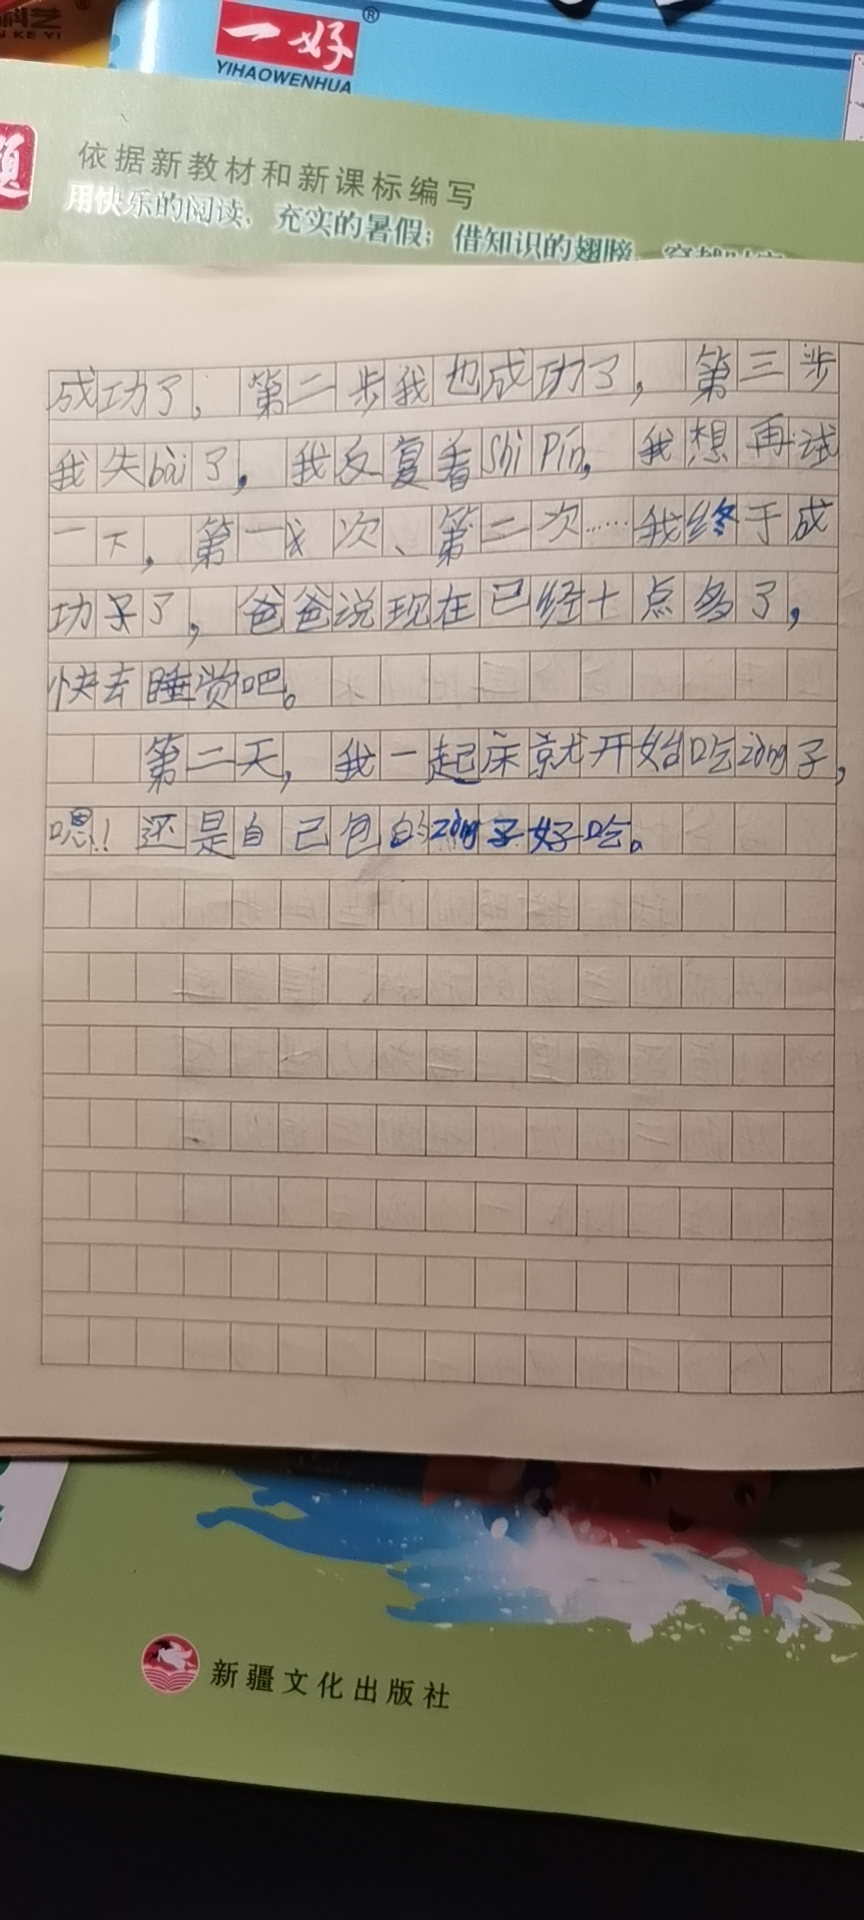 一好
®
YIHAOWENHUA
KE YI
依据新教材和新课标编写
用快乐的阅读，充实的暑假；借知识的翅膀，
成功了，第二步我也成功了，第三步
我失bài了，我反复看Shi Pín，我想再试
一下，第一次、第二次……我终于成
功了，爸爸说现在已经十点多了，
快去睡觉吧。
第二天，我一起床就开始吃zòng子，
嗯！还是自己包的zòng子好吃。
新疆文化出版社